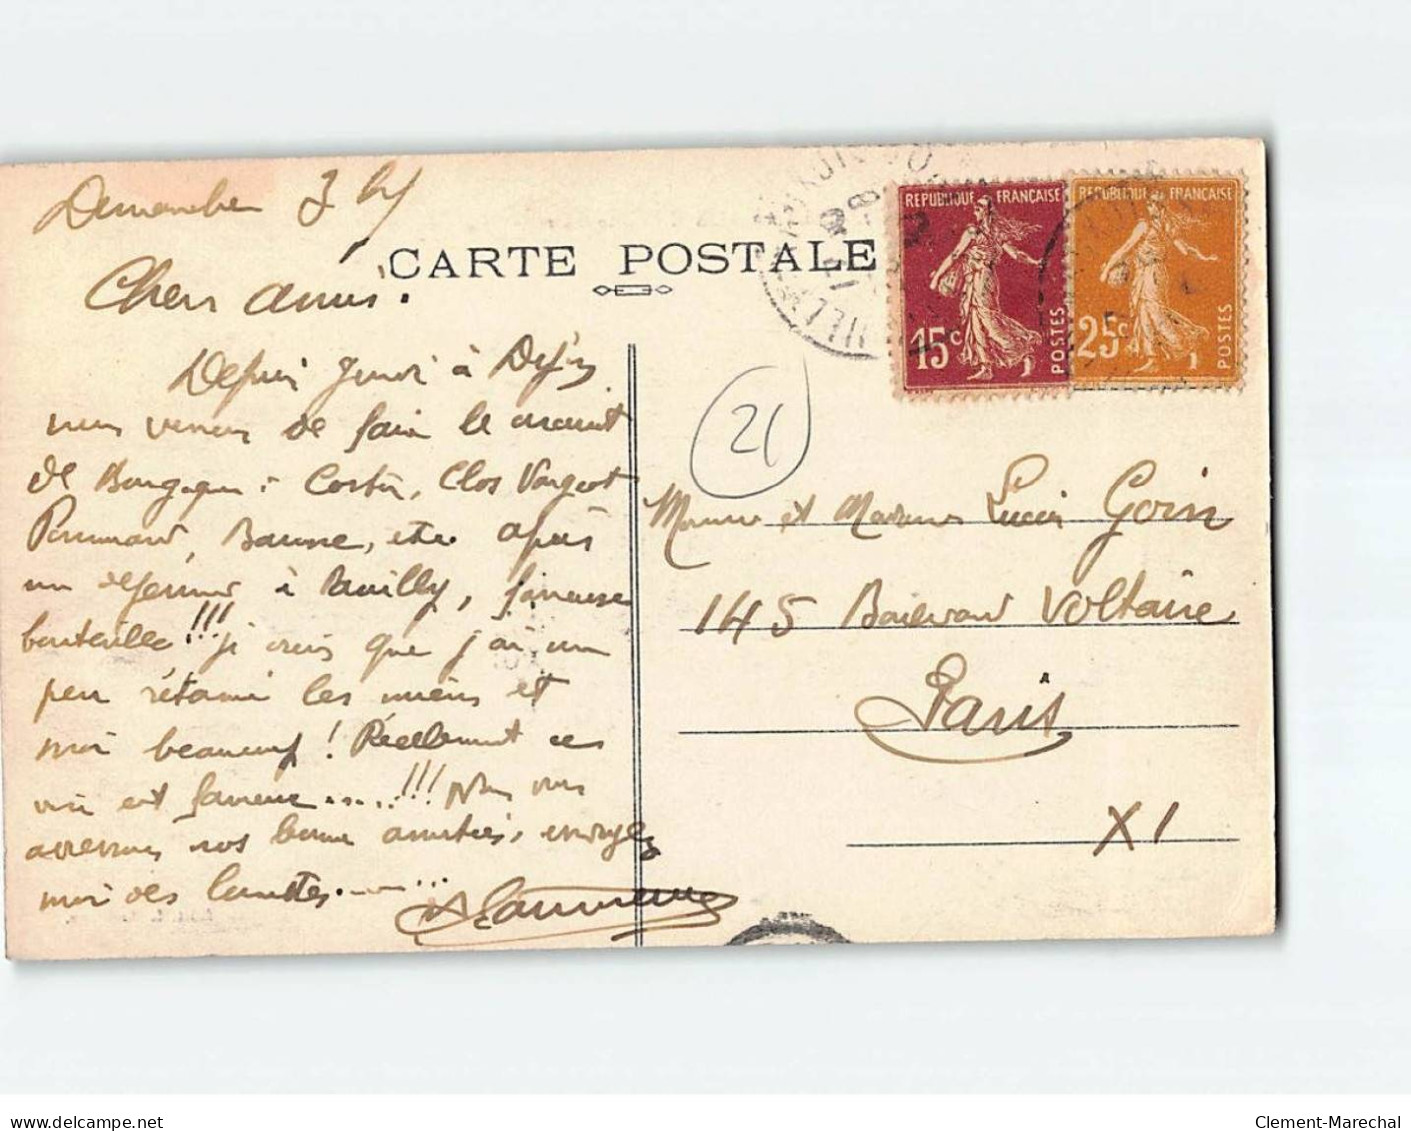 Dimanche 3
CARTE POSTALE
Chers amis.
Depuis Jeudi à Dijon
nous venons de faire le circuit
de Bourgogne : Corton, Clos Vougeot
Pommard, Beaune, etc. après
un déjeuner à Rouilly, fameuse
bouteille !!! je crois que j'ai un
peu rétami les miens et
moi beaucoup ! Réellement ces
vin est fameux.....!!! Nous vous
adressons nos bonne amitiés, envoyez
moi des lunettes.......
REPUBLIQUE FRANÇAISE
15c
POSTES
REPUBLIQUE FRANÇAISE
25c
POSTES
21
Monsieur et Madame Lucien Goin
145 Boulevard Voltaire
Paris
XI
delcampe.net
Clement-Marechal